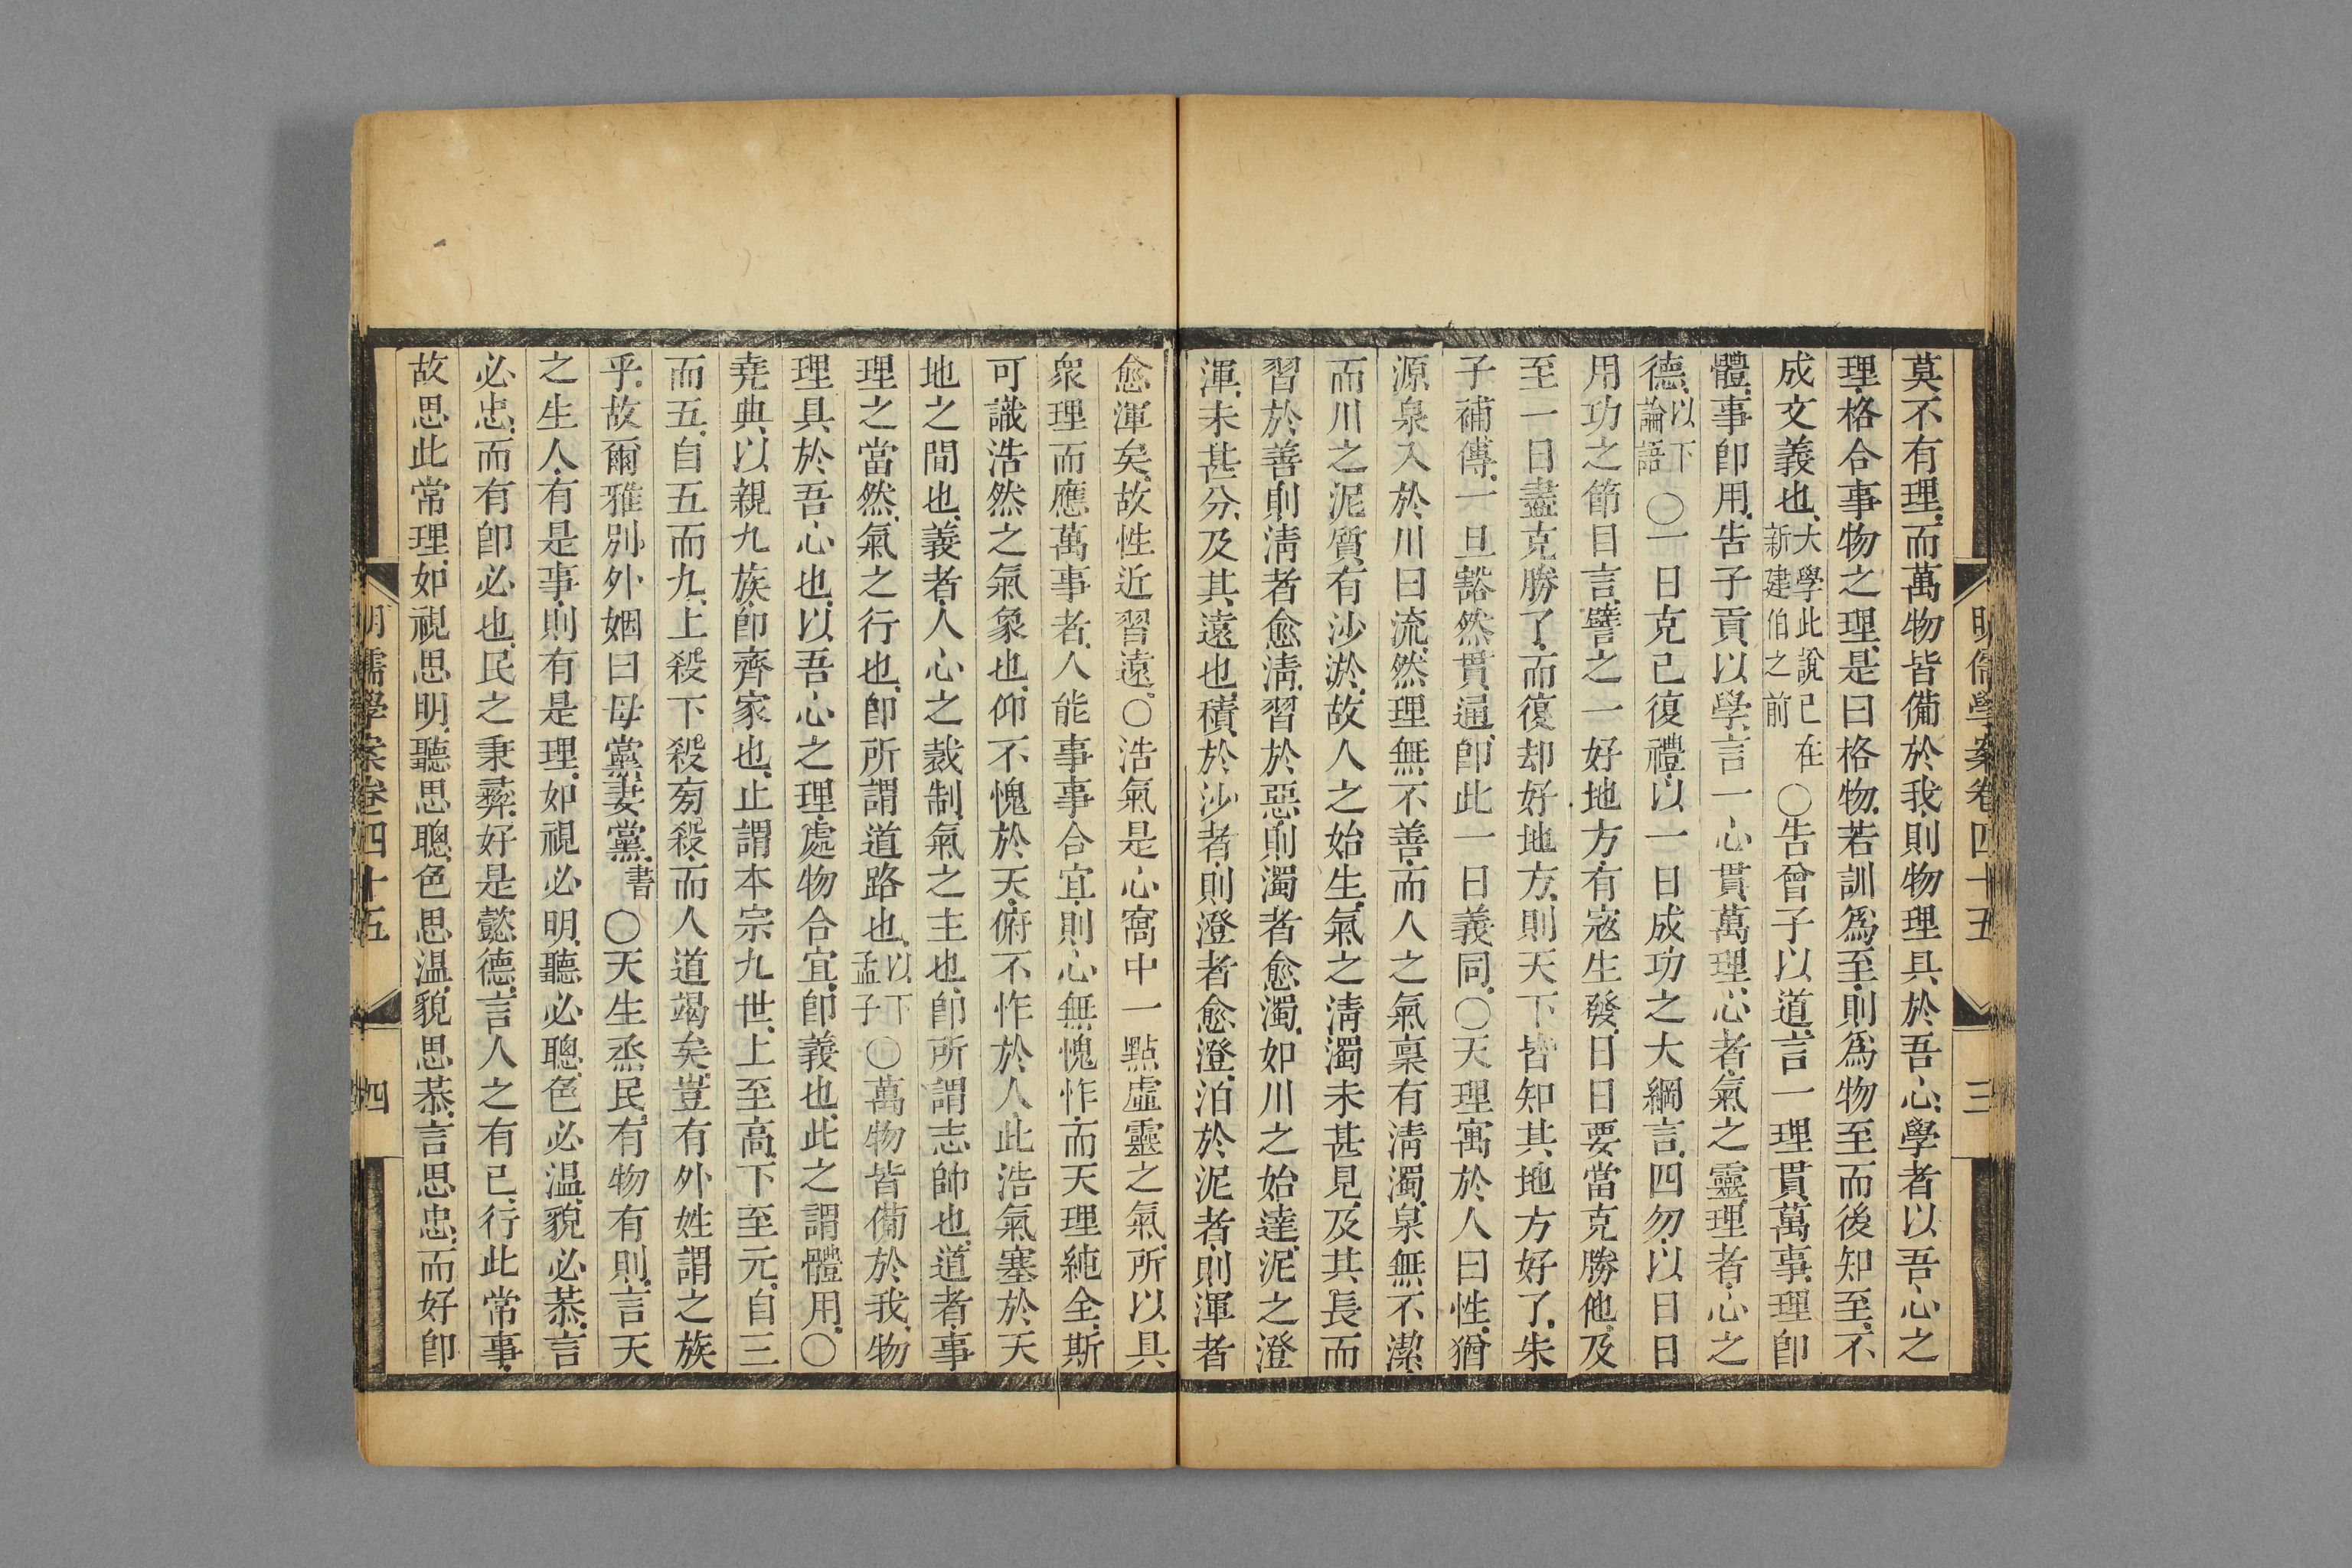 明儒學案卷四十五
三
莫不有理而萬物皆僃於我則物理具於吾心學者以吾心之
理格合事物之理是曰格物若訓爲至則爲物至而後知至不
成文義也大學此說已在新建伯之前〇告曾子以道言一理貫萬事理卽
體事卽用告子貢以學言一心貫萬理心者氣之靈理者心之
德以下論語〇一日克己復禮以一日成功之大綱言四勿以日日
用功之節目言譬之一好地方有寇生發日日要當克勝他及
至一日盡克勝了而復却好地方則天下皆知其地方好了朱
子補傳一旦豁然貫通卽此一日義同〇天理寓於人曰性猶
源泉入於川曰流然理無不善而人之氣稟有淸濁泉無不潔
而川之泥質有沙淤故人之始生氣之淸濁未甚見及其長而
習於善則淸者愈淸習於惡則濁者愈濁如川之始達泥之澄
渾未甚分及其遠也積於沙者則澄者愈澄泊於泥者則渾者
愈渾矣故性近習遠〇浩氣是心窩中一點虛靈之氣所以具
衆理而應萬事者人能事事合宜則心無愧怍而天理純全斯
可識浩然之氣象也仰不愧於天俯不怍於人此浩氣塞於天
地之間也義者人心之裁制氣之主也卽所謂志帥也道者事
理之當然氣之行也卽所謂道路也以下孟子〇萬物皆僃於我物
理具於吾心也以吾心之理處物合宜卽義也此之謂體用〇
堯典以親九族卽齊家也止謂本宗九世上至高下至元自三
而五自五而九上殺下殺旁殺而人道竭矣豈有外姓謂之族
乎故爾雅別外姻曰母黨妻黨書〇天生烝民有物有則言天
之生人有是事則有是理如視必明聽必聰色必温貌必恭言
必忠而有卽必也民之秉彝好是懿德言人之有己行此常事
故思此常理如視思明聽思聰色思温貌思恭言思忠而好卽
明儒學案卷四十五
四